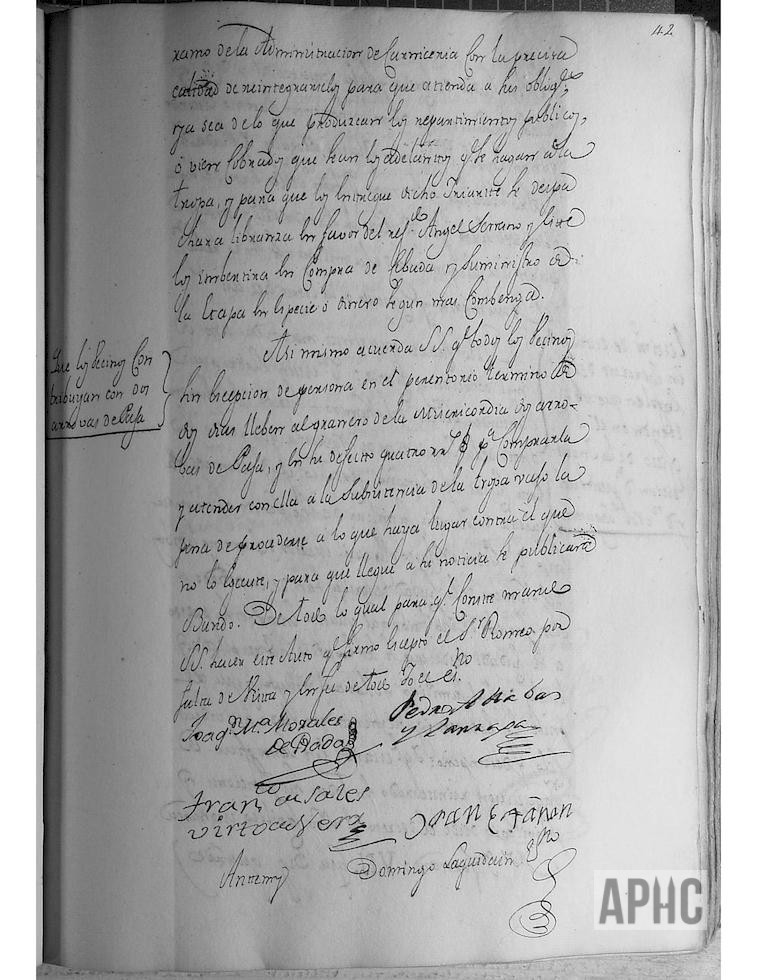 42
ramo de la Administracion de Carniceria con la precisa
calidad de reintegrarsela para que atienda a sus oblig.s
ya sea de lo que produzcan los repartimientos publicos,
o vien cobrados que sean los adelantos q.e se hagan a la
tropa, y para que los entregue dicho se despa
chara libranza en favor del ref.do Angel Serrano y este
los imbertira en compra de Cebada y suministro de
la Etapa en especie o dinero segun mas combenga.
Que los Vecinos con
tribuyan con dos
arrovas de Paja
Asi mismo acuerda SS. q.e todos los Vecinos
sin excepcion de persona en el perentorio termino de
dos dias lleben al granero de la Misericordia dos arro-
vas de Paja, y en su defecto quatro r.s p.a comprarla
y atender con ella a la subsistencia de la tropa vajo la
pena de procederse a lo que haya lugar contra el que
no lo egecute, y para que llegue a su noticia se publicará
Bando. De todo lo qual para q.e conste mandó
SS. hacer este Auto q.e firmó excepto el S.r Romeo por
falta de Vista y en fee de todo Yo el es.no
Joaq.n M.a Morales
de Rada
Pedro
y
Fran.co de Sales
Virto de Vera
Juan Estanon
Antemi
Domingo Laguidain Es.no
APHC